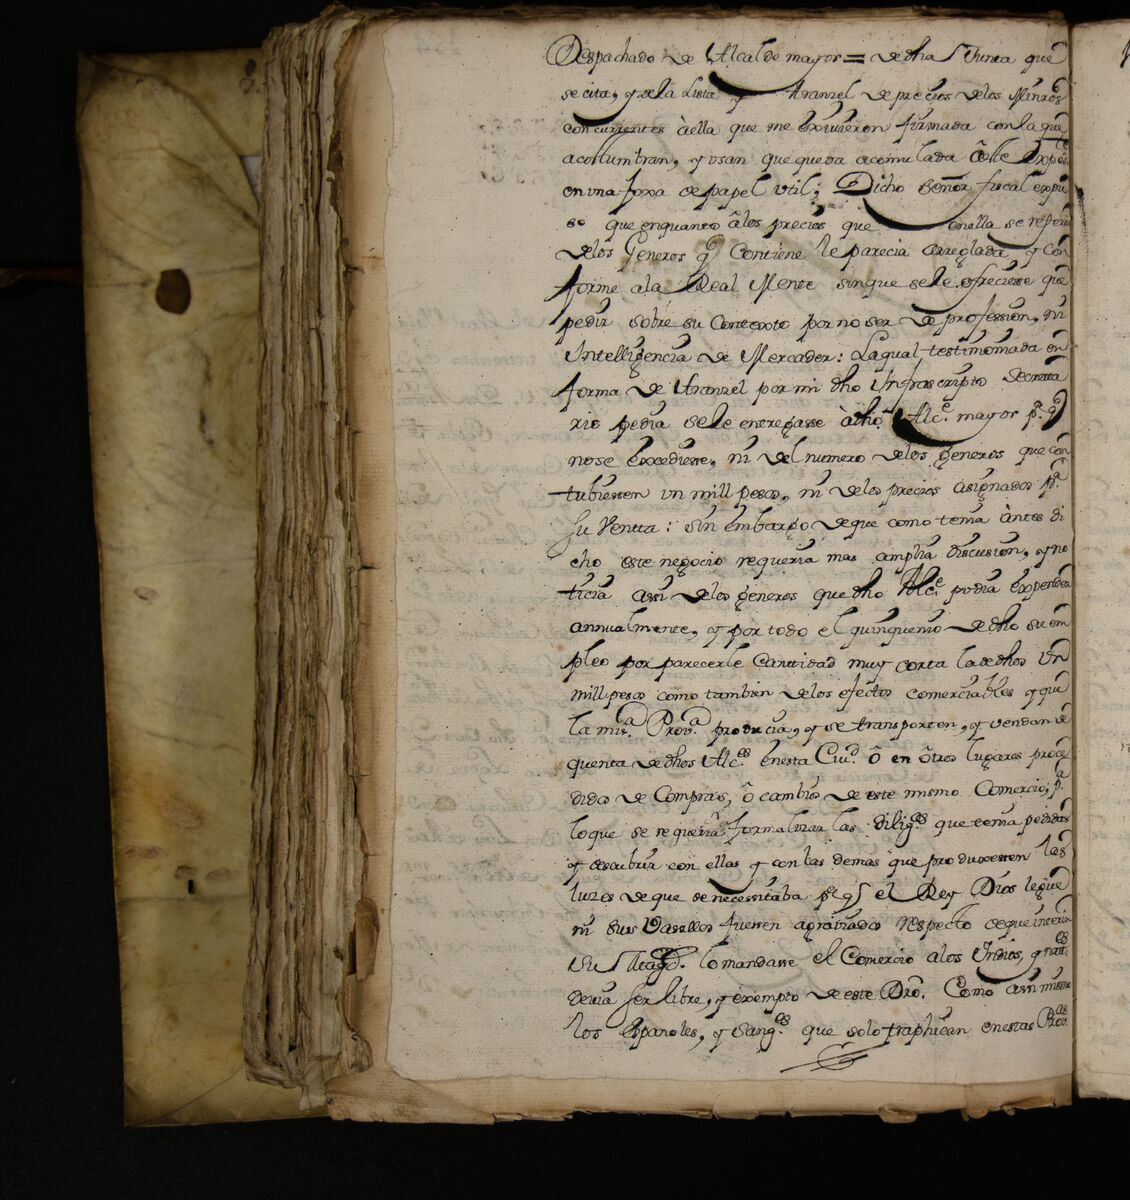 Despachado de Alcalde mayor = de dha Junta que
se cita, y de la Lista y Aranzel de precios de los Minros
concurrentes à ella que me exivieron firmada con la que
acostumbran, y usan que queda acomulada â este Expte
en una foxa de papel util; Dicho Señor fiscal expu
so que en quanto â los precios que en ella se refern
de los Generos q contiene le parecia arreglada y con
forme a la Real Mente sin que se le ofreciesse que
pedir sobre su Contexto por no ser de profession, ni
Intelligencia de Mercader: La qual testimoniada en
forma de Aranzel por mi dho Infrascripto Secreta
rio pedia se le entregasse à dho Alce. mayor pa. q
no se excediesse, ni del numero de los generos que con
tubiessen un mill pesos, ni de los precios asignados pa.
su Ventta: sin embargo de que como tenia àntes di
cho este negocio requeria mas amplia discusion, y no
ticia assi de los generos que dho Alce. podia expender
annualmente, y por todo el quinquenio de dho su em
pleo por parecerle Cantidad muy corta la de dhos Un
mill pesos como tambien de los efectos comerciables y que
la mis.a Prov.a producia, y se transporten, y vendan de
quenta de dhos Alc.es en esta Ciu.d ô en ôtros lugares proce
didos de Compras, ô cambios de este mismo Comercio; pa
lo que se requeria formalizar las dilig.as que tenia pedidas
y descubrir con ellas y con las demas que produxessen las
luzes de que se necessitaba pa. q el Rey Dios le gue
ni sus Vasallos fuessen agraviados respecto de que interin
su Magd. lo mandasse el Comercio a los Indios, y natt.es
devia ser libre, y exempto de este Dro. Como assi mismo
los Españoles, y Sang.es que solo traphican en estas Prov.as